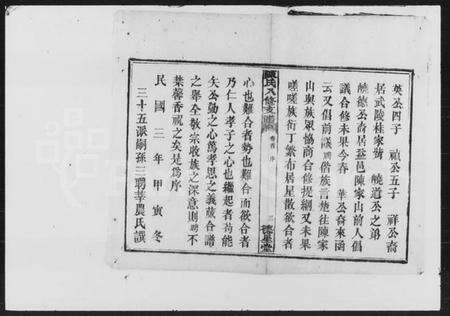 英公四子 禎公五子 祥公裔
居武陵桂家灣 曉道公之弟
曉德公裔居益邑陳家山前人倡
議合修未果今春 華公裔來函
云又倡前議聘偕族善楚往陳家
山與族眾協商合修提綱又未果
嗟嗟族衍丁繁布居星散欲合者
陳氏八修支譜 卷首 序 二 德星堂
心也難合者勢也難合而欲合者
乃仁人孝子之心也繼起者苟能
矢公勤之心篤孝思之義蕆合譜
之舉全敦宗收族之深意則聘不
禁馨香祝之矣是為序
民國三年甲寅冬
三十五派嗣孫三聘莘農氏譔